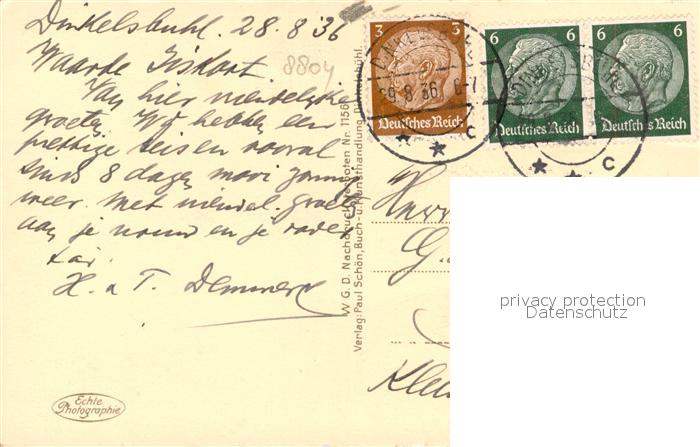 Dinkelsbuhl. 28.8.36
Waarde
8804
Van hier vriendelijke
groeten. Wij hebben een
prettige reis en vooral
sinds 8 dagen mooi
weer. Met vriendel. groeten
aan je vrouw en je
H. a T.
Echte
Photographie
W G. D. Nachdruck verboten Nr. 1156
Verlag: Paul Schön, Buch- u. Kunsthandlung Dinkelsbühl.
3 3
Deutsches Reich
6 6
Deutsches Reich
6 6
Deutsches Reich
8.36. 6-7
c
c
G.
privacy protection
Datenschutz